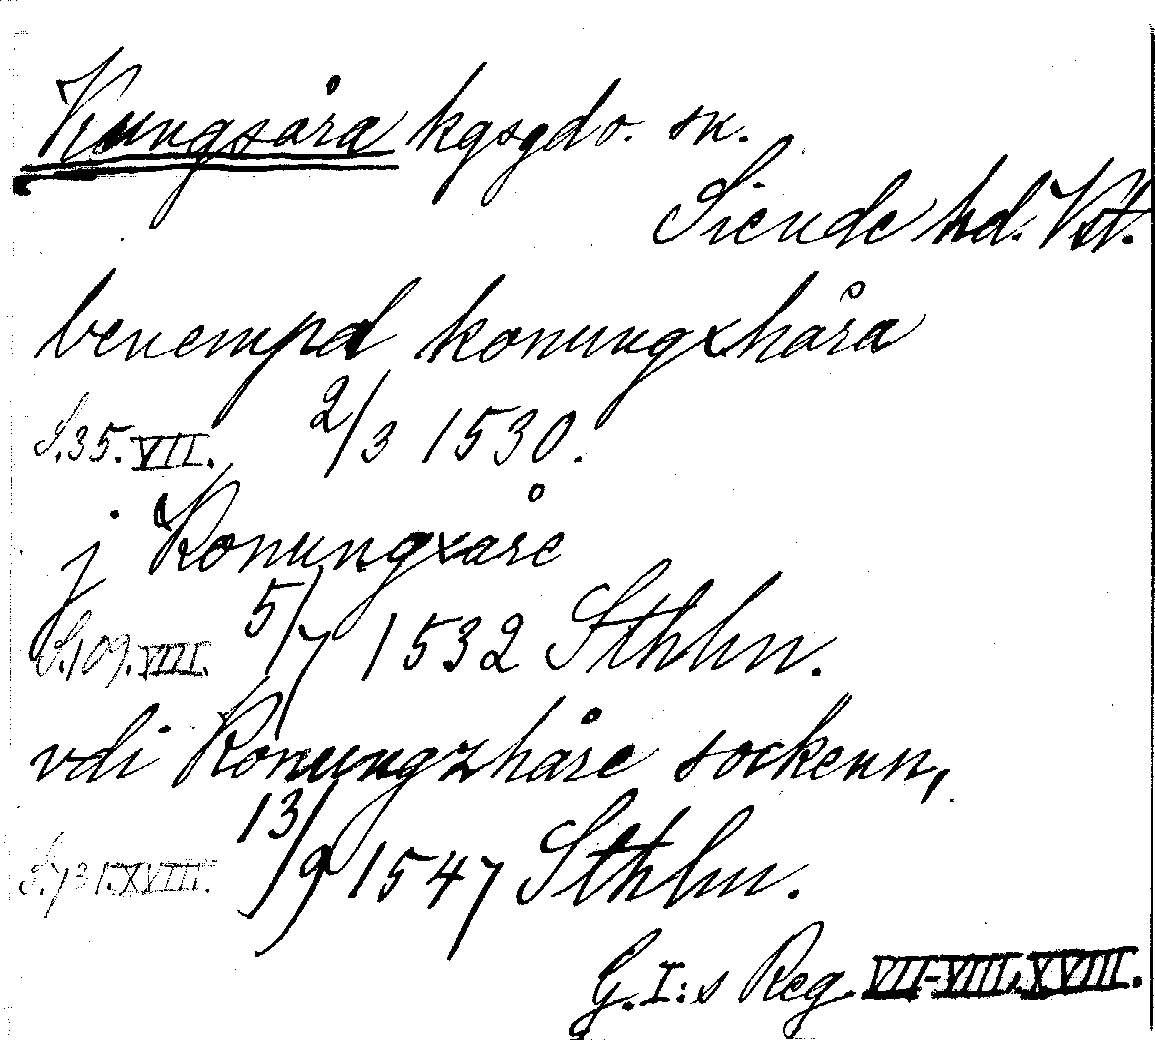 Kungsåra kgsgdo. sn.
Siende hd. Vst.
benempd konungxhåra
S.35.VII. 2/3 1530.
j Konungxåre
S.109.VIII. 5/7 1532 Sthlm.
vdi Konungzhåre sockenn,
S.731.XVIII. 13/9 1547 Sthlm.
G.I:s Reg. VII-VIII, XVIII.